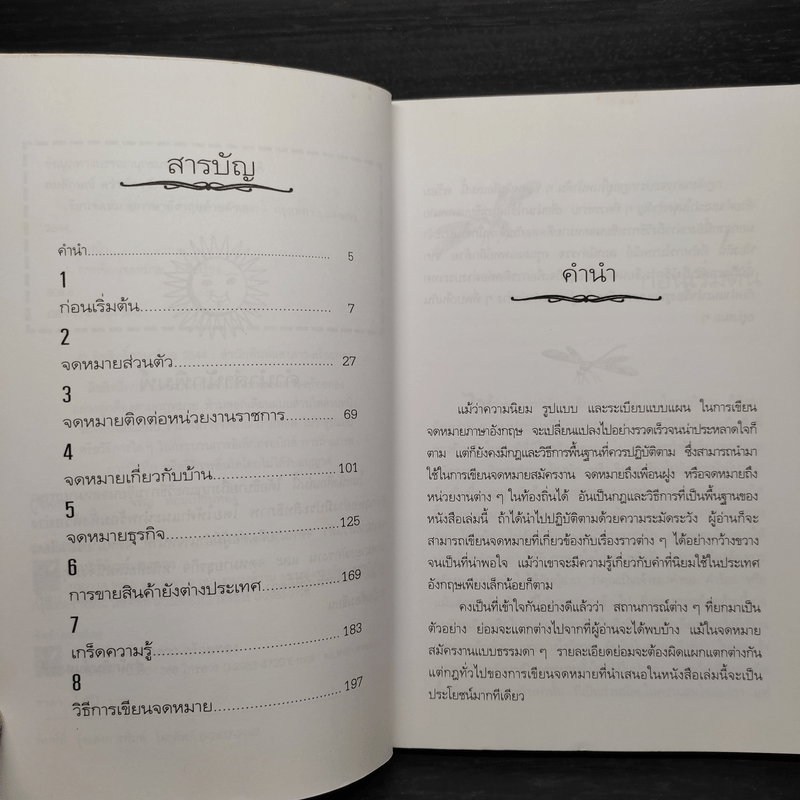 สารบัญ
คำนำ 5
1
ก่อนเริ่มต้น 7
2
จดหมายส่วนตัว 27
3
จดหมายติดต่อหน่วยงานราชการ 69
4
จดหมายเกี่ยวกับบ้าน 101
5
จดหมายธุรกิจ 125
6
การขายสินค้ายังต่างประเทศ 169
7
เกร็ดความรู้ 183
8
วิธีการเขียนจดหมาย 197
คำนำ
แม้ว่าความนิยม รูปแบบ และระเบียบแบบแผน ในการเขียน
จดหมายภาษาอังกฤษ จะเปลี่ยนแปลงไปอย่างรวดเร็วจนน่าประหลาดใจก็
ตาม แต่ก็ยังคงมีกฎและวิธีการพื้นฐานที่ควรปฏิบัติตาม ซึ่งสามารถนำมา
ใช้ในการเขียนจดหมายสมัครงาน จดหมายถึงเพื่อนฝูง หรือจดหมายถึง
หน่วยงานต่าง ๆ ในท้องถิ่นได้ อันเป็นกฎและวิธีการที่เป็นพื้นฐานของ
หนังสือเล่มนี้ ถ้าได้นำไปปฏิบัติตามด้วยความระมัดระวัง ผู้อ่านก็จะ
สามารถเขียนจดหมายที่เกี่ยวข้องกับเรื่องราวต่าง ๆ ได้อย่างกว้างขวาง
จนเป็นที่น่าพอใจ แม้ว่าเขาจะมีความรู้เกี่ยวกับคำที่นิยมใช้ในประเทศ
อังกฤษเพียงเล็กน้อยก็ตาม
คงเป็นที่เข้าใจกันอย่างดีแล้วว่า สถานการณ์ต่าง ๆ ที่ยกมาเป็น
ตัวอย่าง ย่อมจะแตกต่างไปจากที่ผู้อ่านจะได้พบบ้าง แม้ในจดหมาย
สมัครงานแบบธรรมดา ๆ รายละเอียดย่อมจะต้องผิดแผกแตกต่างกัน
แต่กฎทั่วไปของการเขียนจดหมายที่นำเสนอในหนังสือเล่มนี้จะเป็น
ประโยชน์มากทีเดียว